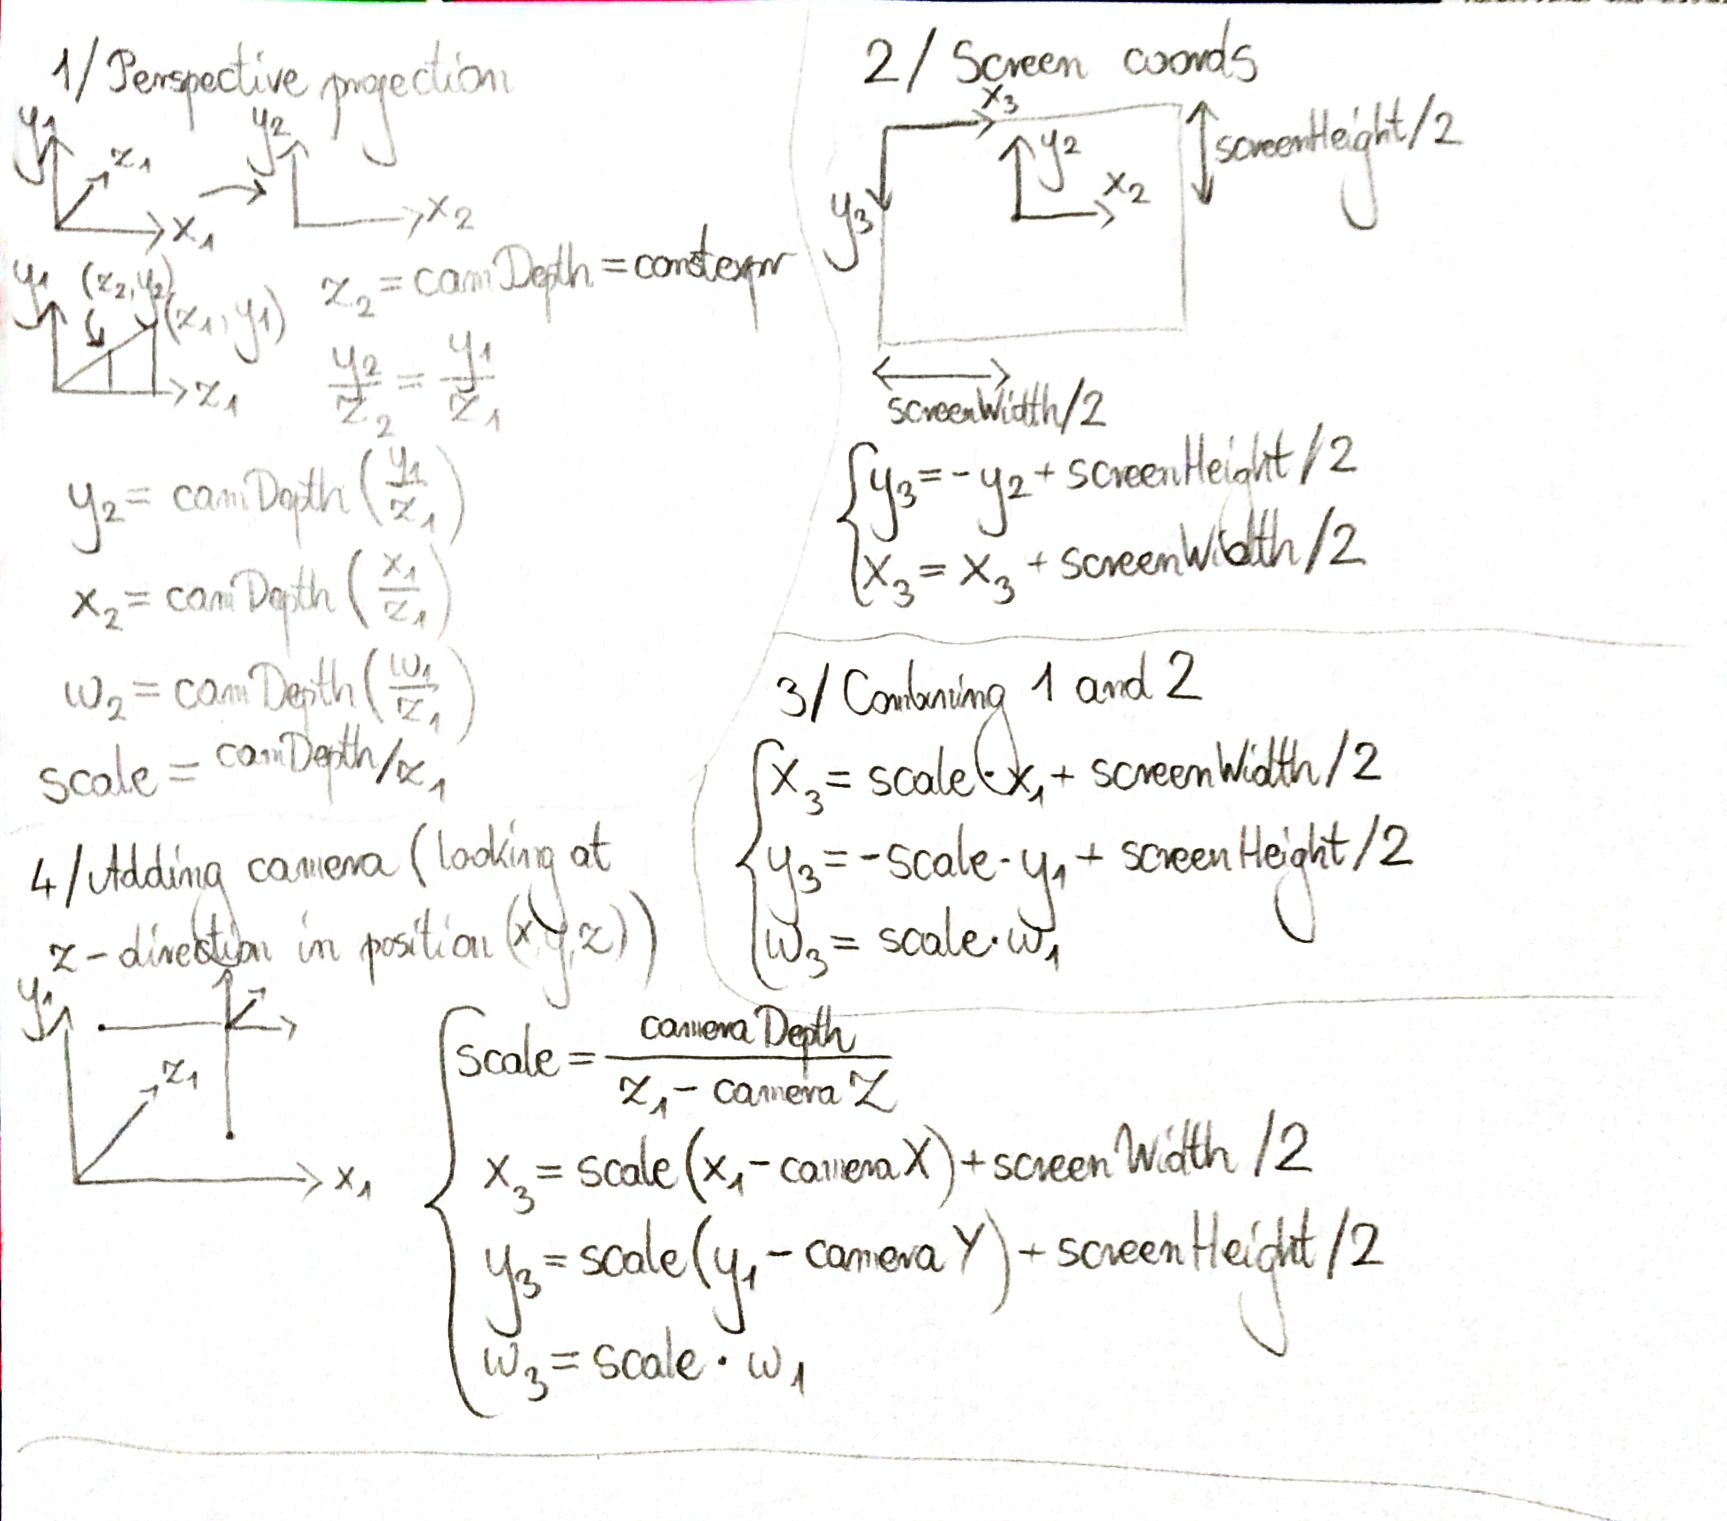 1/ Perspective projection
y1
z1
x1
y2
x2
y1
(z2, y2)
(z1, y1)
z1
z2 = camDepth = constexpr
y2/z2 = y1/z1
y2 = camDepth (y1/z1)
x2 = camDepth (x1/z1)
w2 = camDepth (w1/z1)
scale = camDepth/z1
2/ Screen coords
x3
y3
y2
x2
screenHeight/2
screenWidth/2
y3 = -y2 + screenHeight/2
x3 = x3 + screenWidth/2
3/ Combining 1 and 2
x3 = scale · x1 + screenWidth/2
y3 = -scale · y1 + screenHeight/2
w3 = scale · w1
4/ Adding camera (looking at
z-direction in position (x, y, z))
y1
z1
x1
scale = cameraDepth / z1 - cameraZ
x3 = scale (x1 - cameraX) + screenWidth/2
y3 = scale (y1 - cameraY) + screenHeight/2
w3 = scale · w1